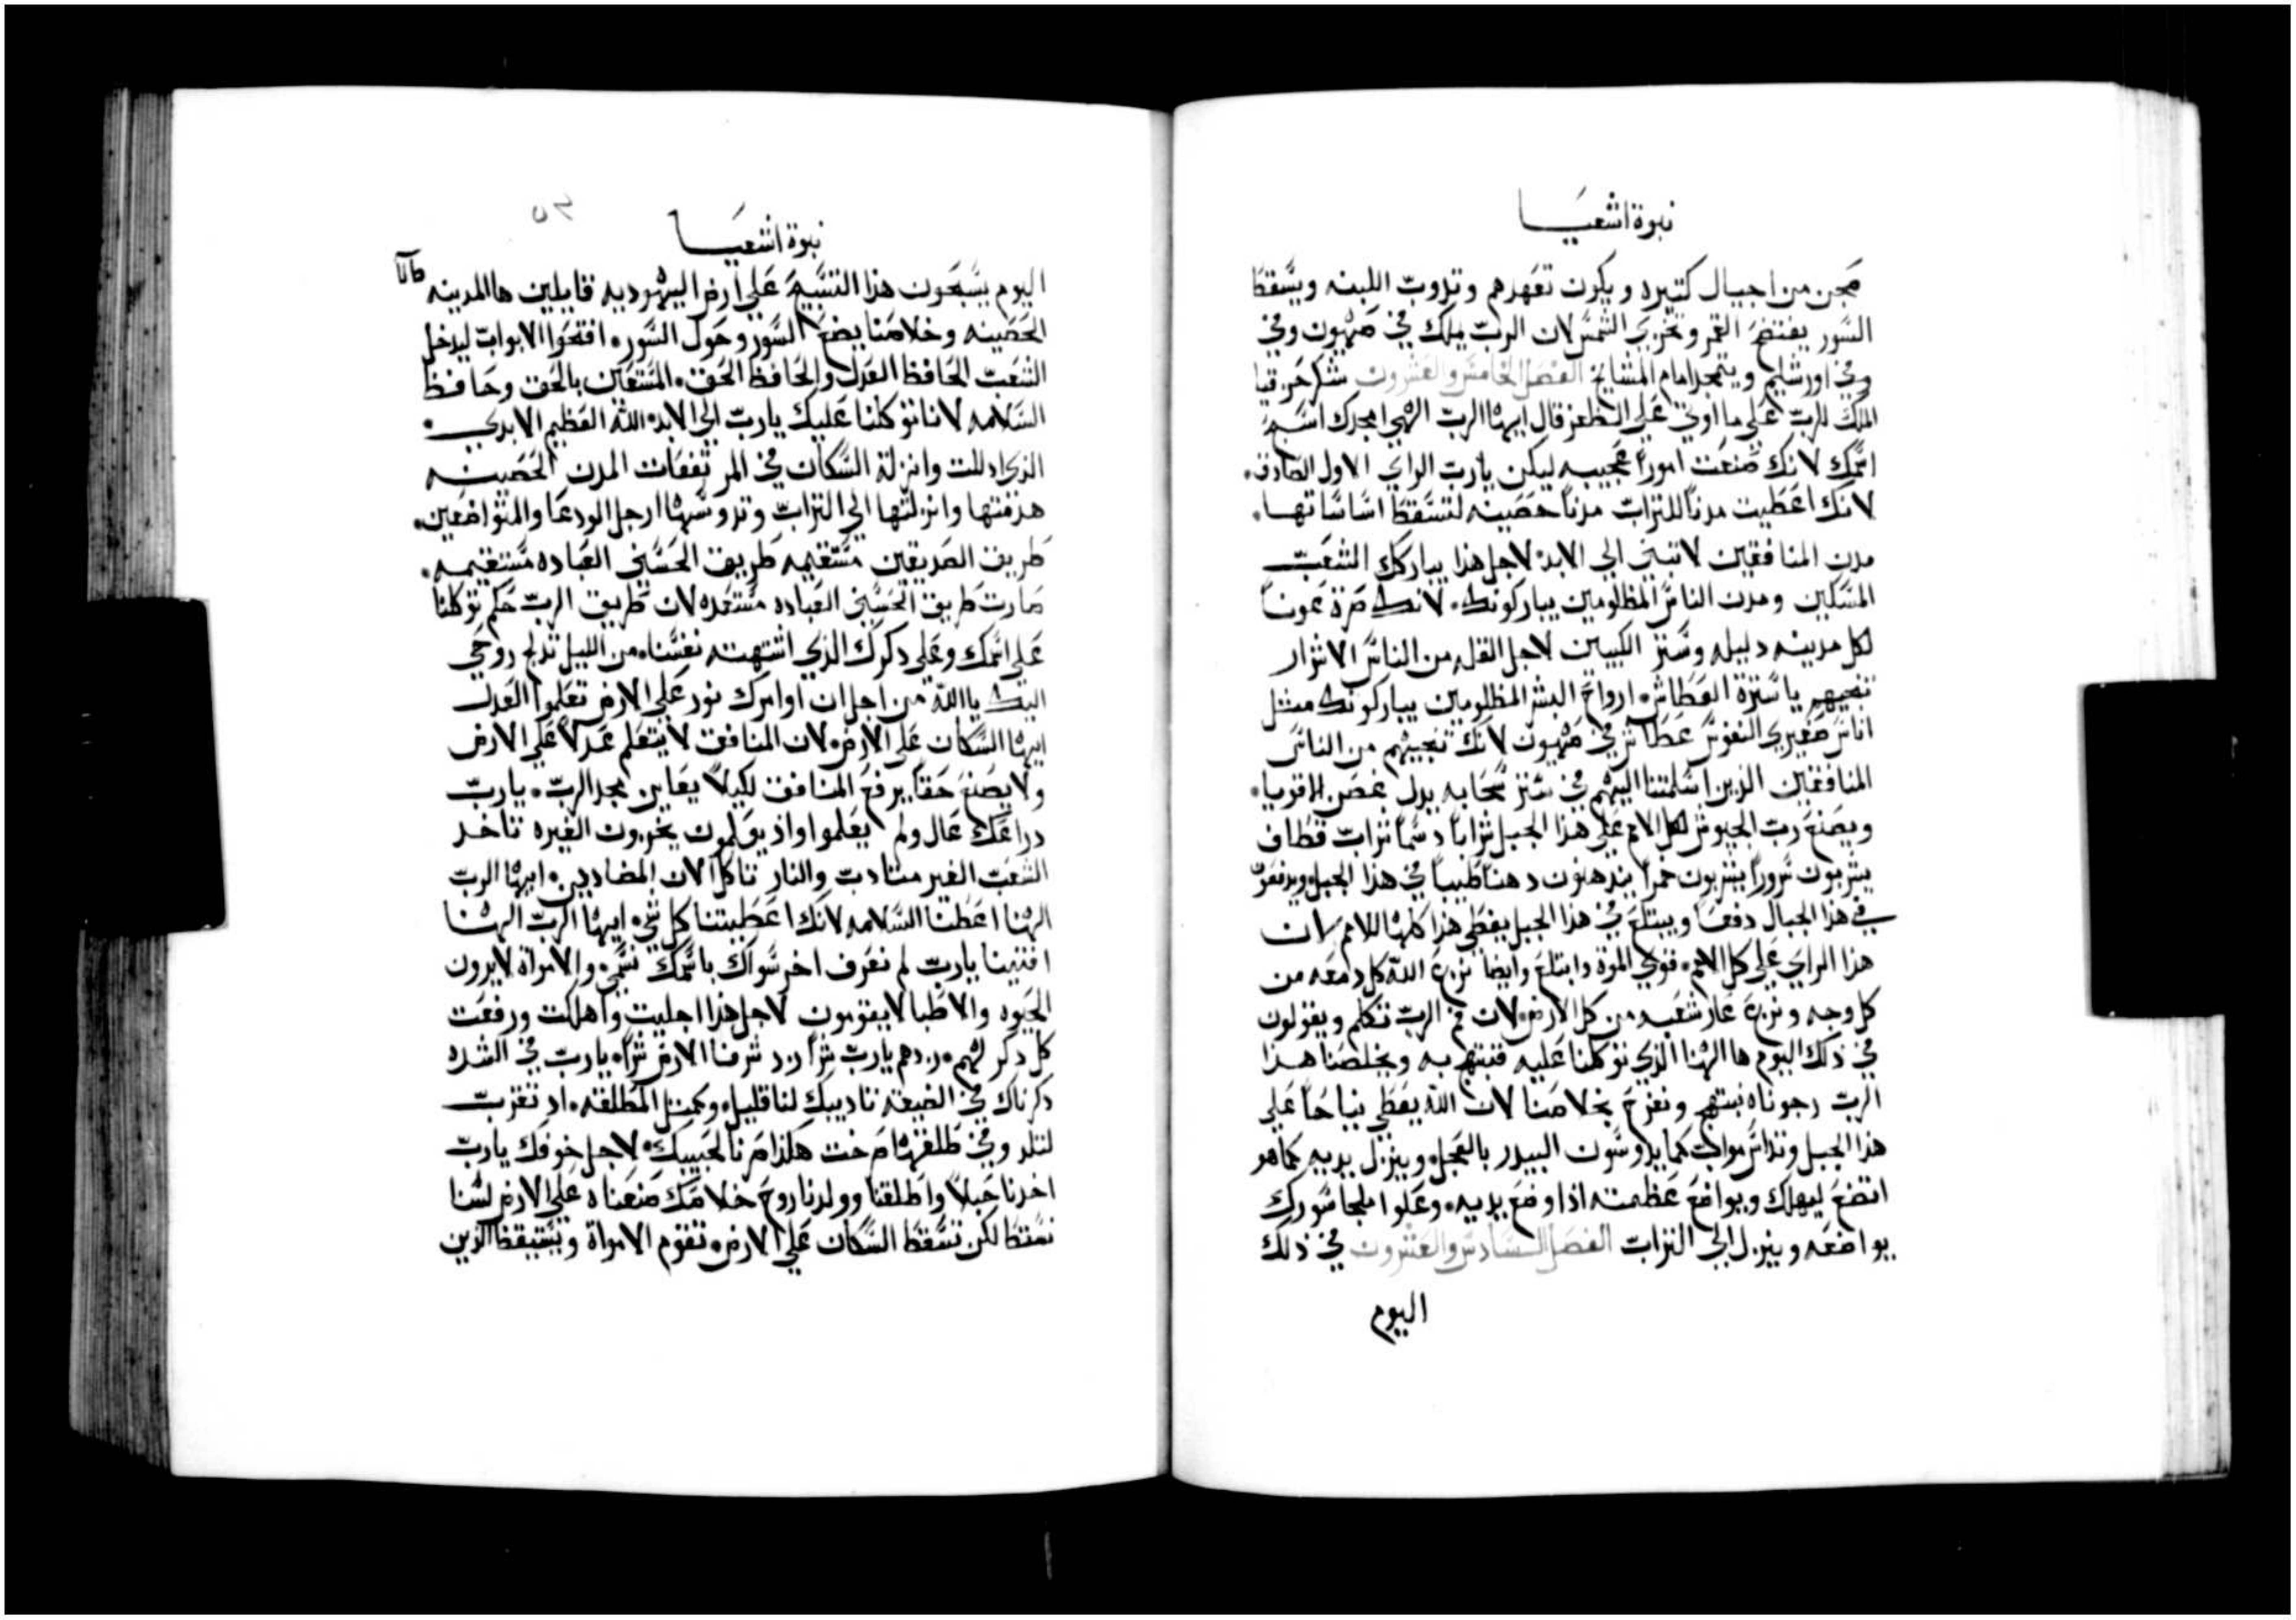 نبوة اشعيا
سجن من اجيال كتيره ويكون تعهدهم وتدوب اللبنه ويسقط
السور يفتضح القمر وتخزي الشمس لان الرب يملك في صهيون وفي
وفي اورشليم ويتمجد امام المشايخ الفصل الخامس والعشرون شكر حزقيا
الملك للرب علي ما اوتي علي الظفر قال ايها الرب الهي امجدك اسبح
اسمك لانك صنعت امورا عجيبه ليكن يارب الراي الاول الصادق
لانك اعطيت مدنا للتراب مدنا حصينه لتسقط اساساتها
مدن المنافقين لا تبني الي الابد لاجل هذا يباركك الشعب
المسكين ومدن الناس المظلومين يباركونك لانك صرة عونا
لكل مدينه دليله وستر الكييبن لاجل القله من الناس الاشرار
تنجيهم ياسترة العطاش ارواح البشر المظلومين يباركونك متل
اناس صغيري النفوس عطاش في صهيون لانك تنجيهم من الناس
المنافقين الذين اسلمتنا اليهم في ستر سحابه بدل غصن الاقويا
ويصنع رب الجيوش لكل الامم علي هذا الجبل شرابا دسما شراب قطاف
يشربون سرورا يشربون خمرا يندهنون دهنا طيبا في هذا الجبل ويدفعون
في هذا الجبال دفعا ويبتلع في هذا الجبل يعطي هذا كلها للامم لان
هذا الراي علي كل الامم فوي الموة وابتلع وايضا نزع الله كل دمعه من
كل وجه ونزع عار شعبه من كل الارض لان فم الرب تكلم ويقولون
في ذلك اليوم ها الهنا الذي توكلنا عليه فنبتهج به ويخلصنا هذا
الرب رجوناه نبتهج ونفرح بخلاصنا لان الله يعطي نياحا علي
هذا الجبل وتداس مواب كما يدوسون البيدر بالعجل وينزل يديه كما هو
اتضع ليهلك ويواضع عظمته اذا وضع يديه وعلو املجا سورك
يواضعه وينزل الي التراب الفصل السادس والعشرون في ذلك
اليوم
نبوة اشعيا
اليوم يسبحون هذا التسبيح علي ارض اليهوديه قايلين ها المدينه
الحصينه وخلاصنا يضع السور وحول السور افتحوا الابواب ليدخل
الشعب الحافظ العدل والحافظ الحق المستعين بالحق وحافظ
السلامه لاننا توكلنا عليك يارب الي الابد الله العظيم الابدي
الذي ادللت وانزلة السكان في المرتفعات المدن الحصينه
هدمتها وانزلتها الي التراب وتدوسها ارجل الودعا والمتواضعين
طريق الصديقين مستقيمه طريق الحسني العباده مستقيمه
صارت طريق الحسني العباده مستعده لان طريق الرب حكم توكلنا
علي اسمك وعلي دكرك الذي اشتهته نفسنا من الليل تدلج روحي
اليك يا الله من اجل ان اوامرك نور علي الارض تعلموا العدل
ايها السكان علي الارض لان المنافق لا يتعلم عدلا علي الارض
ولا يصنع حقا يرفع المنافق لكيلا يعاين مجد الرب يارب
دراعك عال ولم يعلموا واذ يعلمون يخزون الغيره تاخد
الشعب الغير متادب والنار تاكل الان المضاددين ايها الرب
الهنا اعطنا السلامه لانك اعطيتنا كل شي ايها الرب الهنا
اقتنينا يارب لم نعرف اخر سواك باسمك نسمي والاموأة لايرون
الحيوه والاطبا لا يقومون لاجل هذا اجلبت واهلكت ورفعت
كل دكر لهم زدهم يارب شرا زد شرفا الارض شرا يارب في الشده
دكرناك في الضيقه تاديبك لنا قليل وكمتل المطلقه اد تقرب
لتلد وفي طلقها صرخت هكذا صرنا لحبيبك لاجل خوفك يارب
اخدنا حبلا واطلقنا وولدنا روح خلاصك صنعناه علي الارض لسنا
نسقط لكن تسقط السكان علي الارض تقوم الامواة ويستيقظ الذين